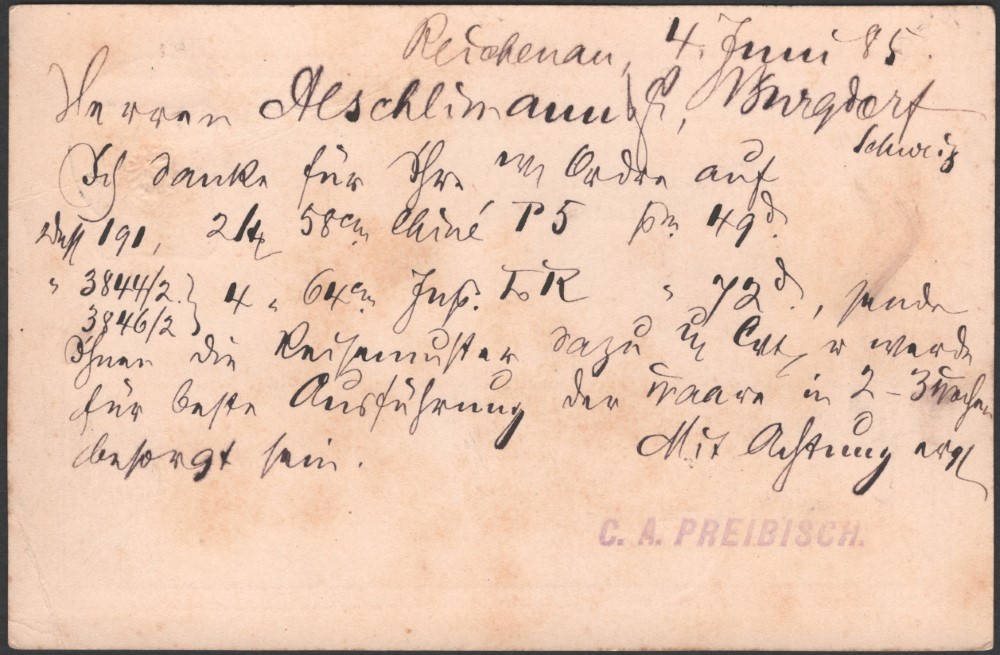 Reichenau, 4. Juni 85.
Herren Aeschlimann, Burgdorf
Schweiz
Ich danke für Ihre Ordre auf
191, 2 58 cm Chiné P 5 49 d.
" 3844/2 } 4 " 64 cm R " 72 d., sende
3846/2
Ihnen die Reisemuster dazu werde
für beste Ausführung der Waare in 2 - 3 Wochen
besorgt sein. Mit Achtung
C. A. PREIBISCH.